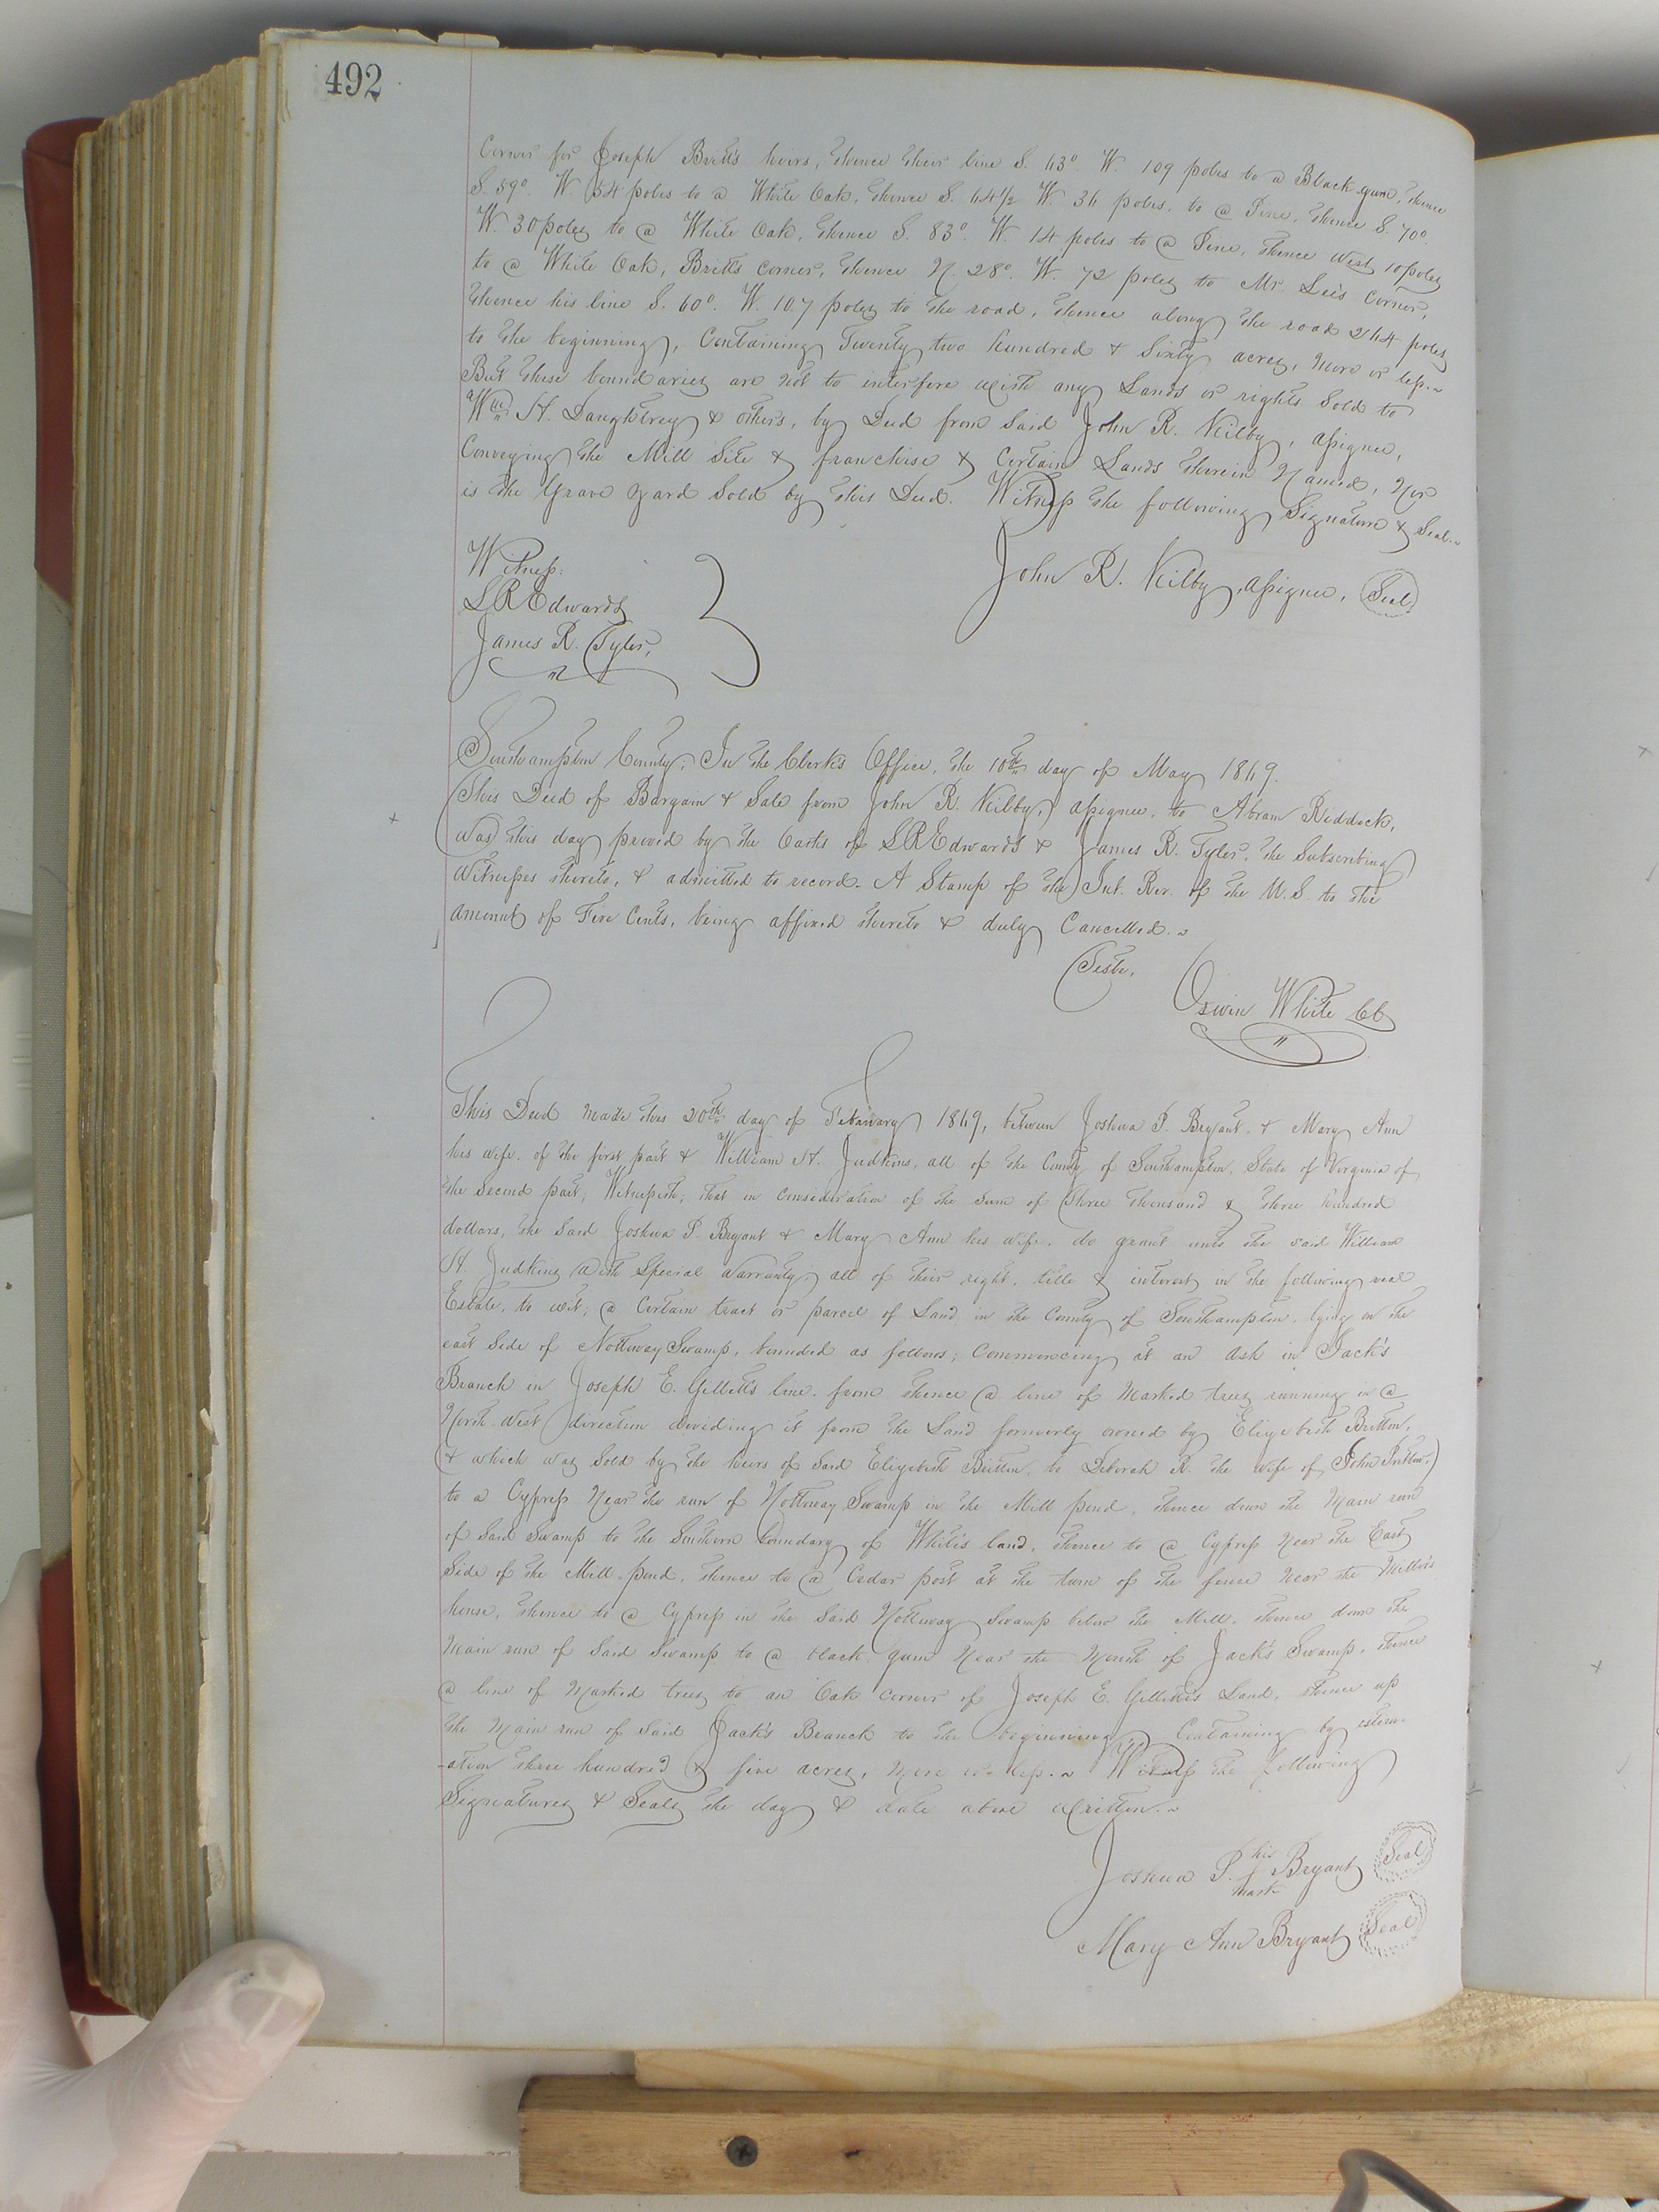 492
Corner for Joseph Britt's heirs, thence their line S. 63° W. 109 poles to a Black gum, thence
S. 59° W. 54 poles to a White Oak, thence S. 64½ W. 36 poles, to a Pine, thence S. 70°
W. 30 poles to a White Oak, thence S. 83° W. 14 poles to a Pine, thence West 10 poles
to a White Oak, Britts Corner, thence N. 28° W. 72 poles to Mr. Lee's Corner,
thence his line S. 60° W. 107 poles to the road, thence along the road 264 poles
to the beginning, Containing Twenty two hundred & Sixty acres, more or less.~
But these boundaries are not to interfere with any Lands or rights Sold to
Wm H. Daughtrey & others, by Deed from Said John R. Kilby, assignee,
Conveying the Mill Site & franchise & Certain Lands therein Named, Nor
is the Grave yard Sold by this Deed. Witness the following Signature & Seal.~
John R. Kilby, assignee, Seal
Witness:
L R Edwards
James R. Tyler,
Southampton County: In the Clerk's Office, the 10th day of May 1869.
This Deed of Bargain & Sale from John R. Kilby, assignee, to Abram Riddick,
was this day proved by the Oaths of L R Edwards & James R. Tyler, the Subscribing
Witnesses thereto, & admitted to record. A Stamp of the Int. Rev. of the U.S. to the
amount of Five Cents, being affixed thereto & duly Cancelled.~
Teste,
Oswin White CC
This Deed made this 20th day of February 1869, between Joshua P. Bryant & Mary Ann
his wife, of the first part & William H. Judkins, all of the County of Southampton, State of Virginia of
the Second part, Witnesseth, that in Consideration of the Sum of Three Thousand & three hundred
dollars, the Said Joshua P. Bryant & Mary Ann his wife, do grant unto the said William
H. Judkins with Special Warranty, all of their right, title & interest in the following real
Estate, to wit; a Certain tract or parcel of Land in the County of Southampton, lying on the
east Side of Nottoway Swamp, bounded as follows; Commencing at an Ash in Jack's
Branch in Joseph E. Gillett's line, from thence a line of Marked trees running in a
North-West direction dividing it from the Land formerly owned by Elizebeth Britton,
& which was Sold by the heirs of Said Elizebeth Britton, to Deborah R. the wife of John
to a Cypress Near the run of Nottoway Swamp in the Mill pond, thence down the Main run
of Said Swamp to the Southern boundary of White's land, thence to a Cypress Near the East
Side of the Mill-pond, thence to a Cedar post at the turn of the fence Near the Miller's
house, thence to a Cypress in the Said Nottoway Swamp below the Mill, thence down the
Main run of Said Swamp to a black gum Near the Mouth of Jack's Swamp, thence
a line of Marked trees to an Oak Corner of Joseph E. Gillett's Land, thence up
the Main run of Said Jack's Branch to the beginning, Containing by estim-
-ation three hundred & five acres, More or less.~ Witness the following
Signatures & Seals the day & date above Written.~
Joshua P. his Bryant Seal
mark
Mary Ann Bryant Seal